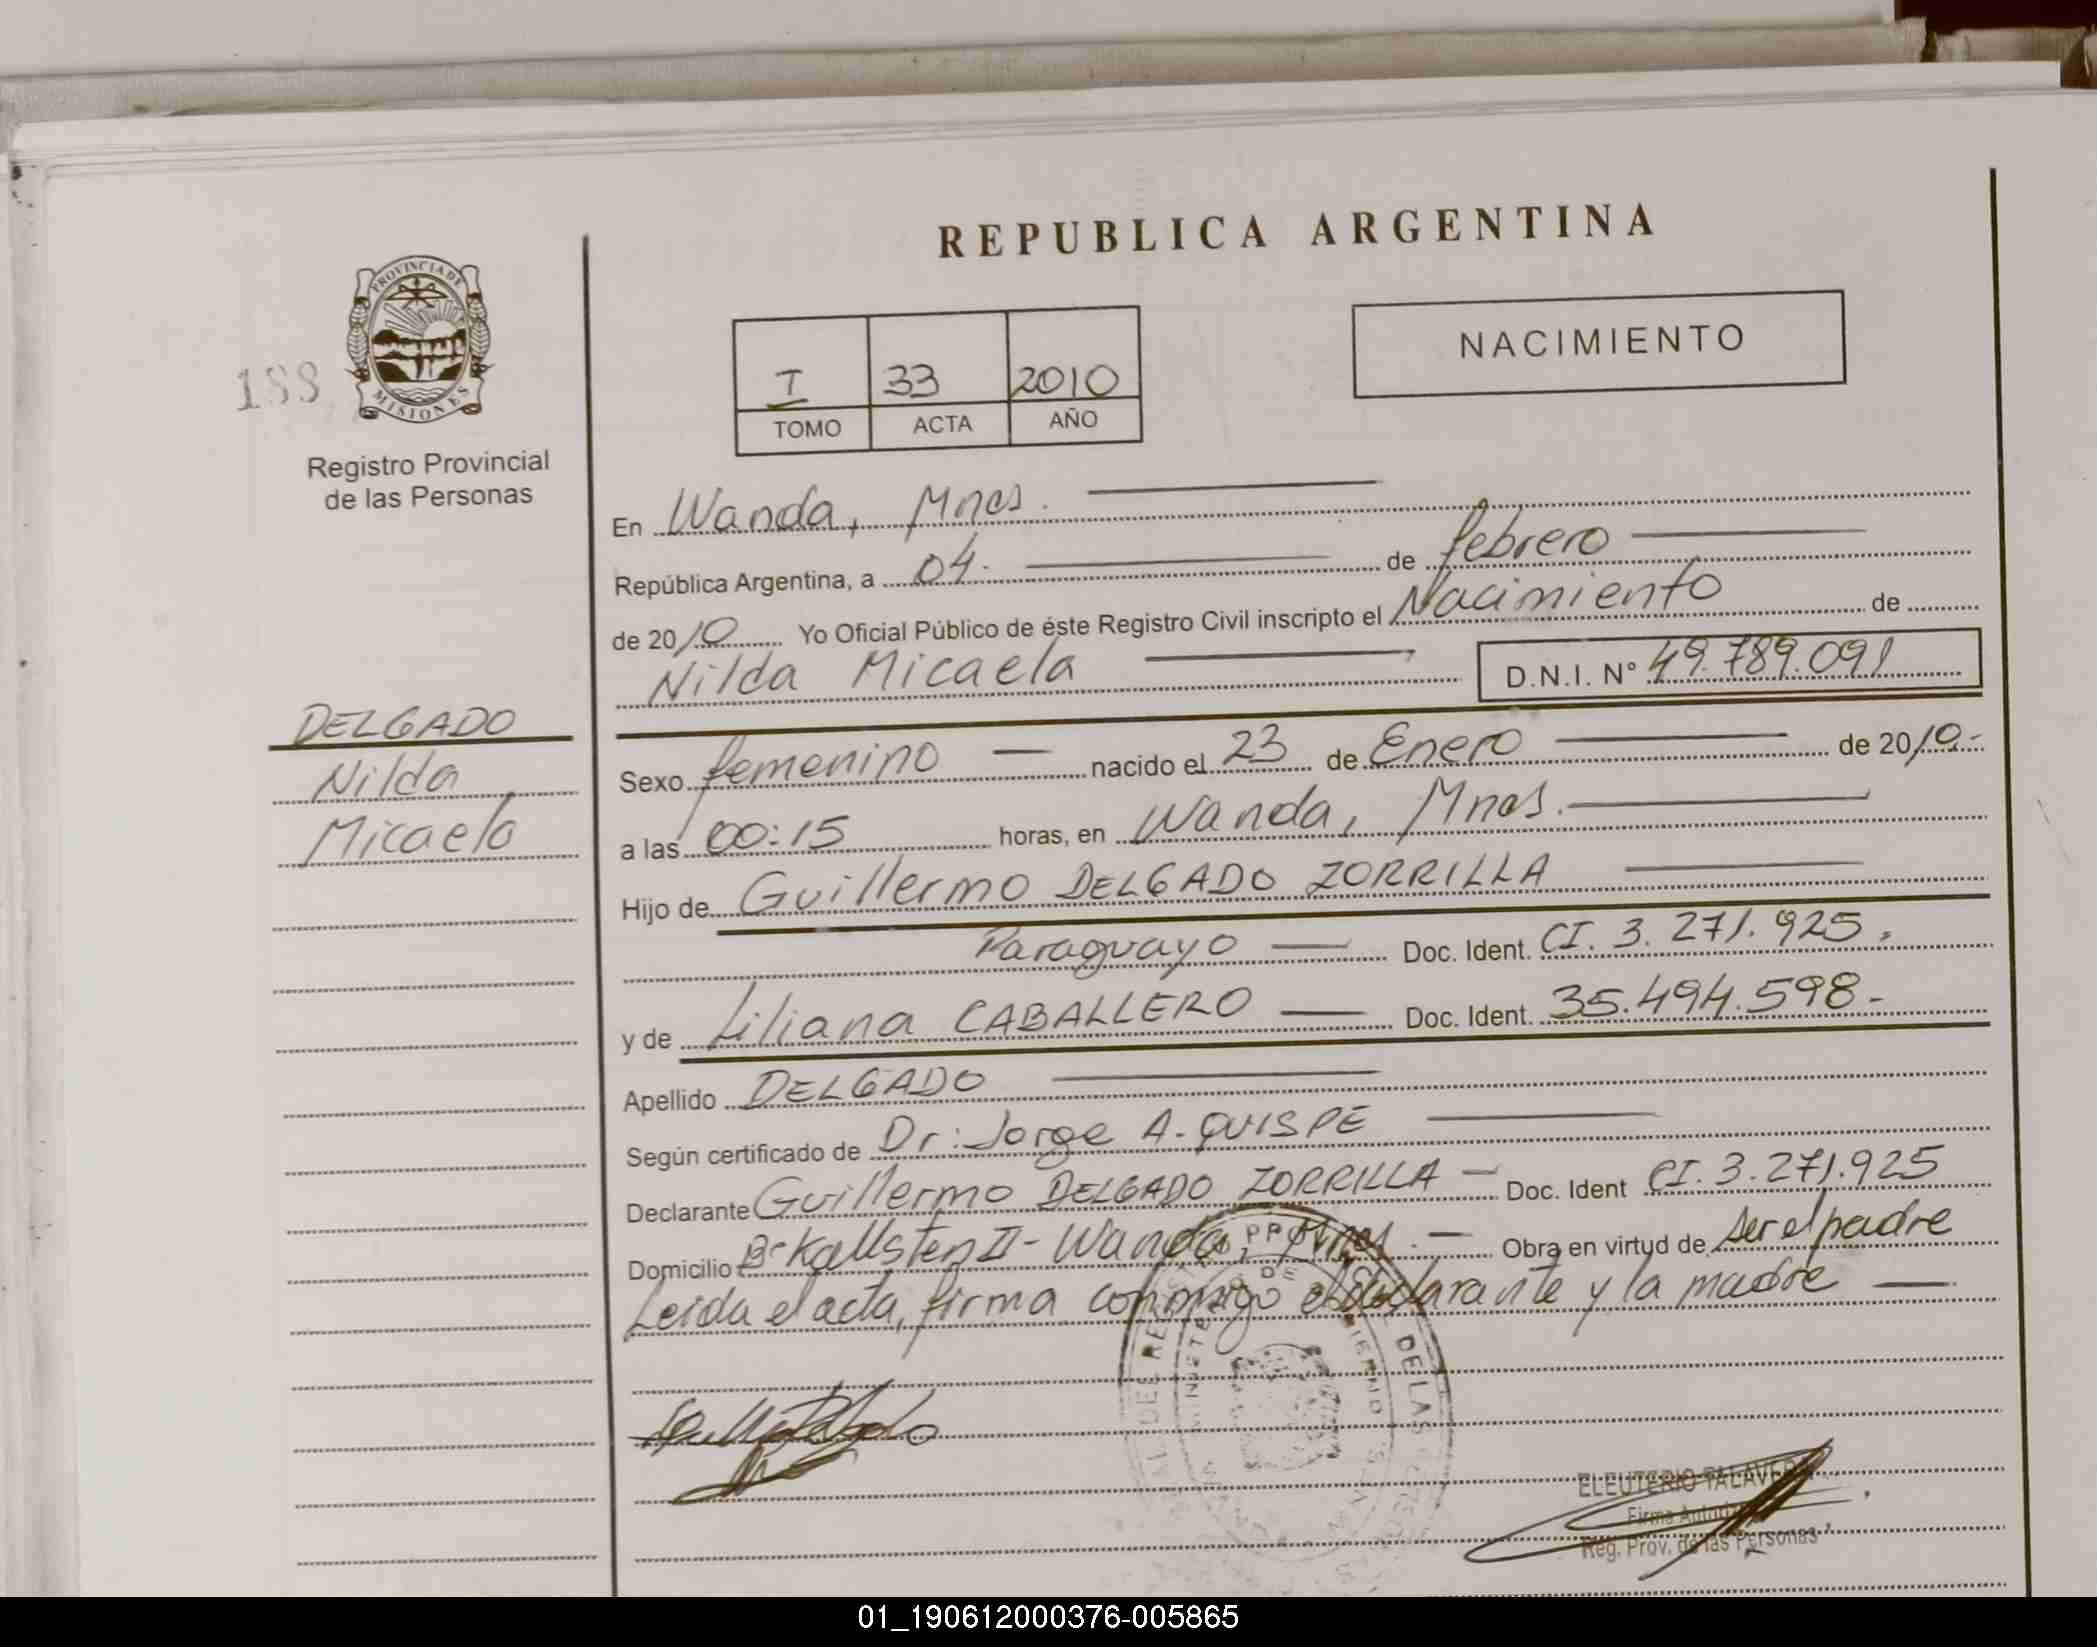 REPUBLICA ARGENTINA
PROVINCIA DE
MISIONES
188
Registro Provincial
de las Personas
I 33 2010
TOMO ACTA AÑO
NACIMIENTO
En Wanda, Mnes.
República Argentina, a 04. de febrero
de 2010 Yo Oficial Público de éste Registro Civil inscripto el Nacimiento de
Nilda Micaela D.N.I. Nº 49.789.091
DELGADO
Nilda
Micaela
Sexo femenino nacido el 23 de Enero de 2010.-
a las 00:15 horas, en Wanda, Mnes.
Hijo de Guillermo DELGADO ZORRILLA
Paraguayo Doc. Ident. CI. 3.271.925.
y de Liliana CABALLERO Doc. Ident. 35.494.598-
Apellido DELGADO
Según certificado de Dr: Jorge A. QUISPE
Declarante Guillermo DELGADO ZORRILLA - Doc. Ident CI. 3.271.925
Domicilio Bº Kallsten II - Wanda, Mnes. - Obra en virtud de ser el padre
Leída el acta, firma conmigo el declarante y la madre
DE LAS
ELEUTERIO TALAVERA
Reg. Prov. de las Personas
01_190612000376-005865